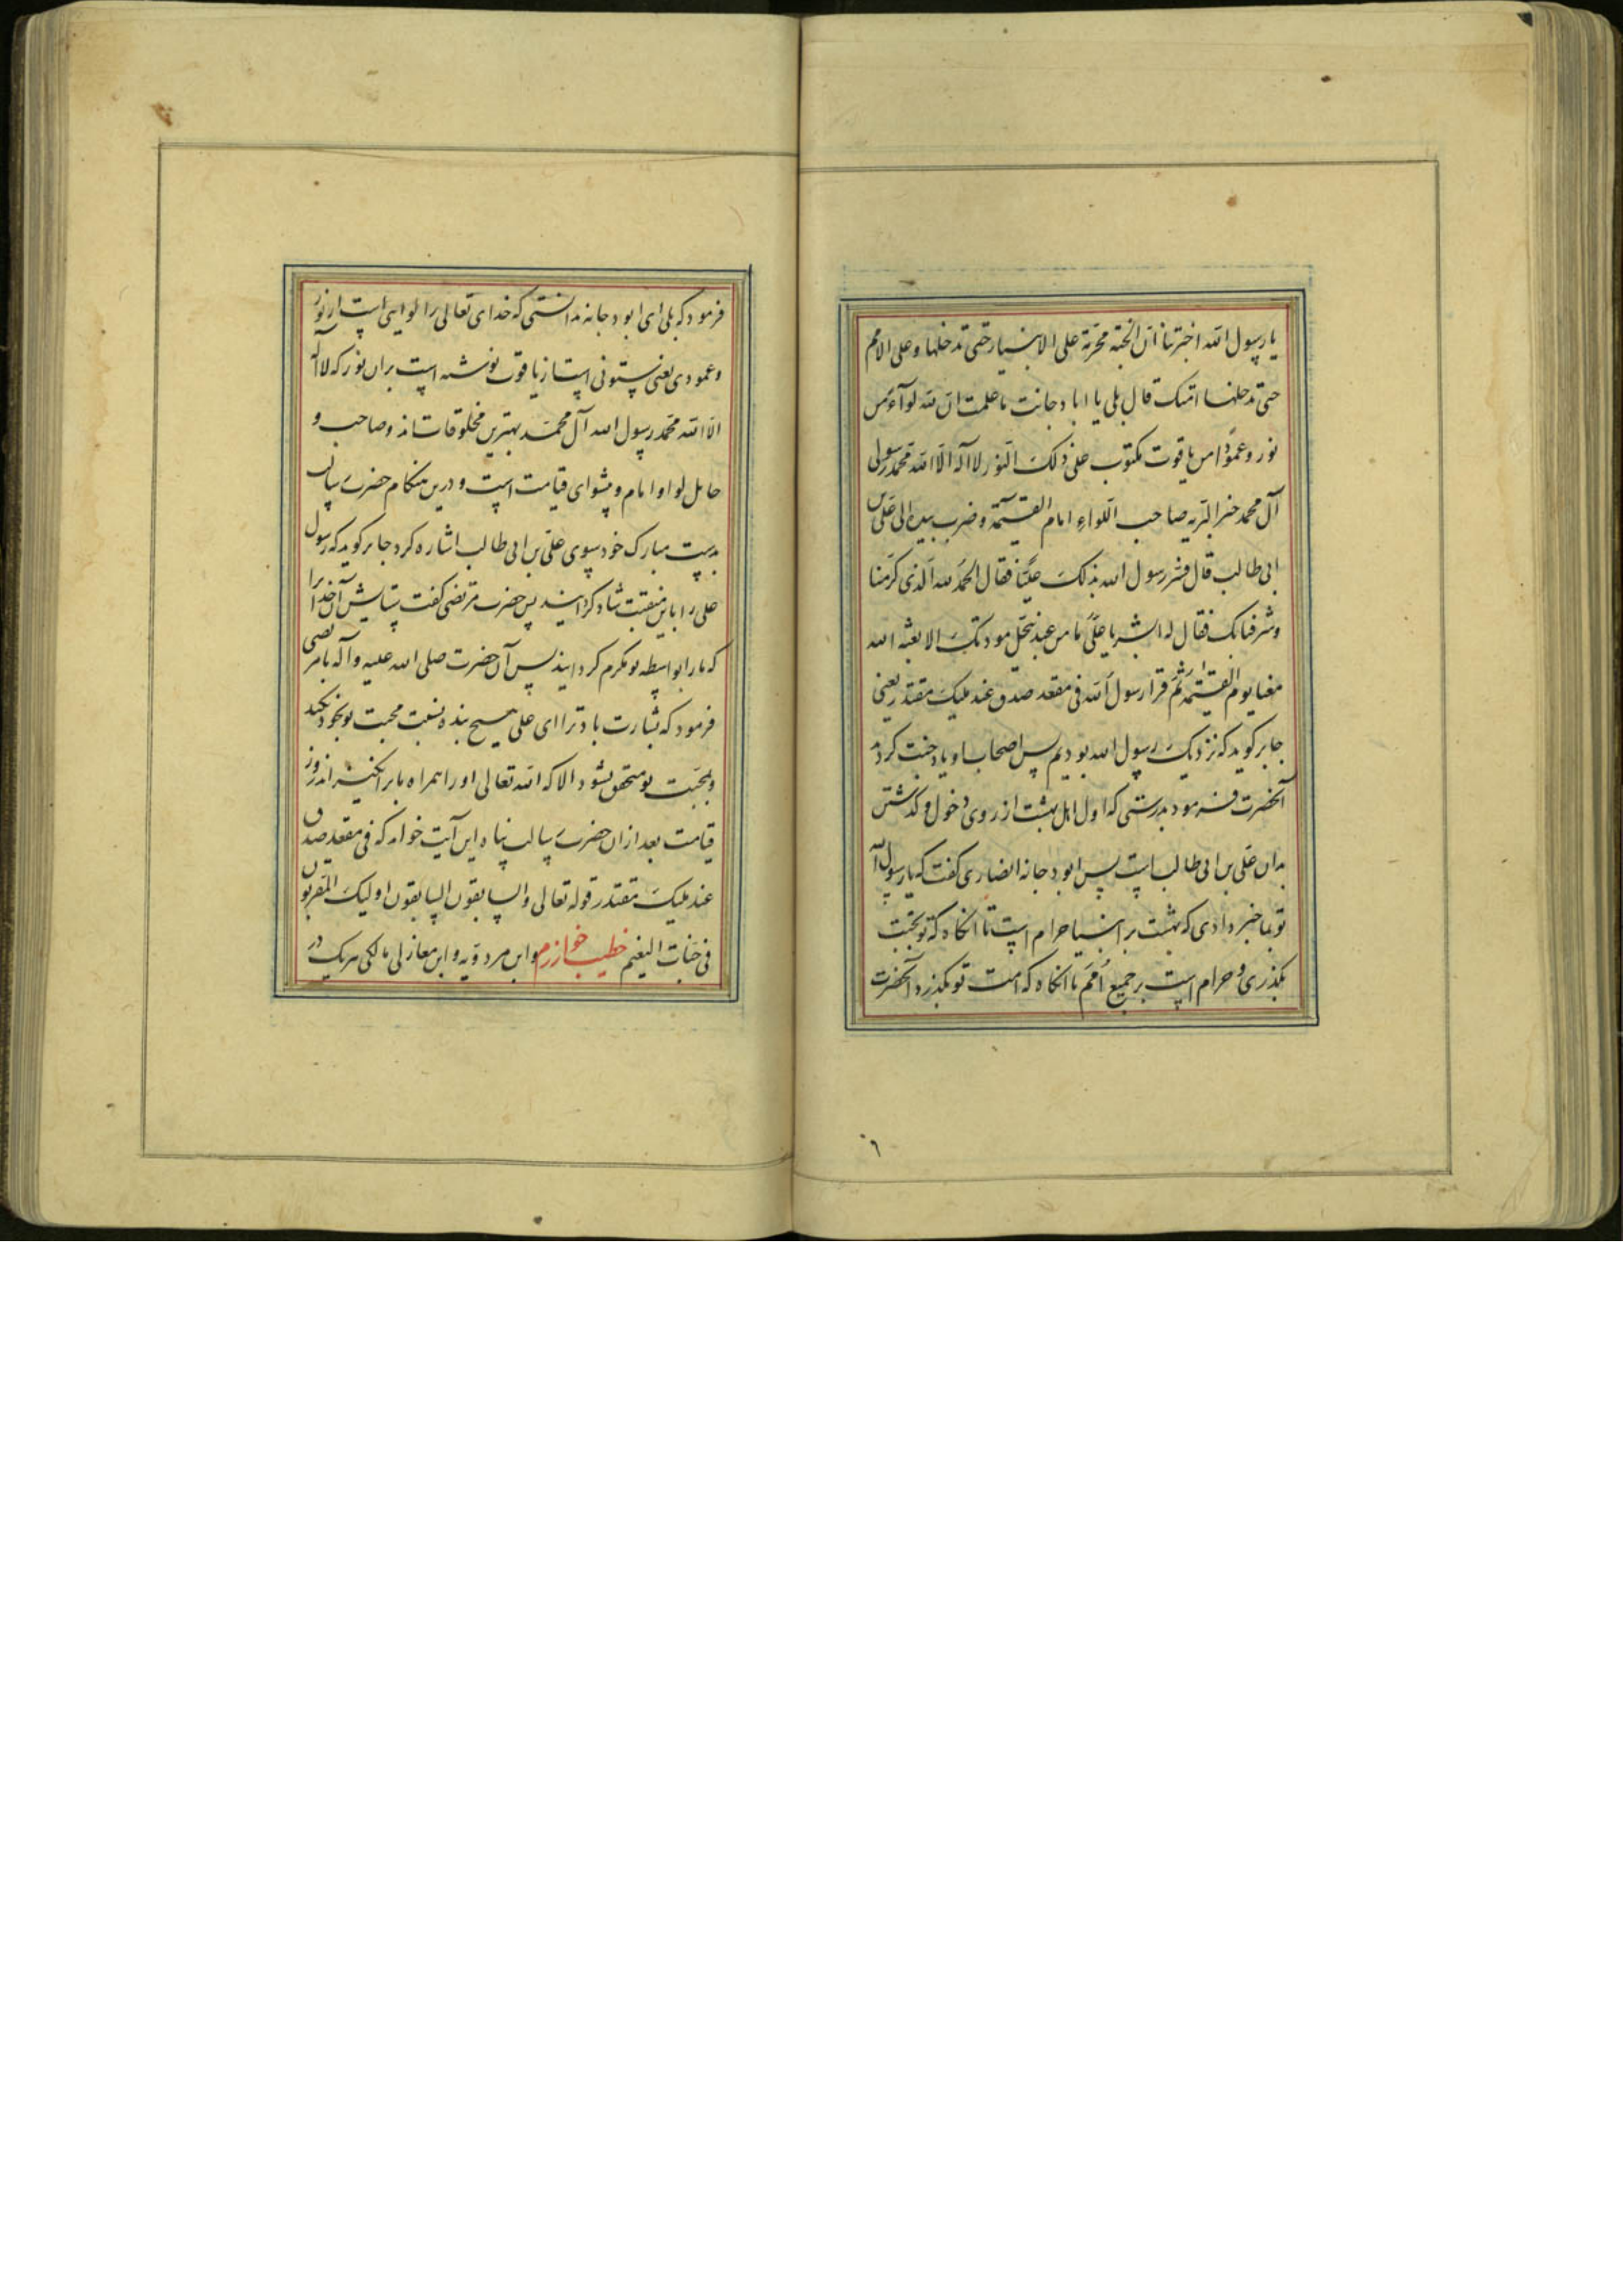 یا رسول الله اخبرتنا ان الجنة محرمة علی الانبیاء حتی تدخلها و علی الامم
حتی تدخلها امتک قال بلی یا ابا دجانت ما علمت ان لله لوآء من
نور و عمودا من یاقوت مکتوب علی ذلک النور لا اله الا الله محمد رسولی
آل محمد خیر البریه صاحب اللواء امام القیمة و ضرب بیده الی علی بن
ابی طالب قال فسر رسول الله بذلک علیا فقال الحمد لله الذی کرمنا
و شرفنا بک فقال له ابشر یا علی ما من عبد ینتحل مودتک الا بعثه الله
معنا یوم القیمة ثم قرا رسول الله فی مقعد صدق عند ملیک مقتدر یعنی
جابر کوید که نزدیک رسول الله بودیم پس اصحاب او یاد جنت کردند
آنحضرت فرمود بدرستی که اول اهل بهشت از روی دخول و کذشتن
بدان علی بن ابی طالب است پس ابو دجانه انصاری کفت که یا رسول الله
تو بما خبر دادی که بهشت بر انبیا حرام است تا انکاه که تو بجنت
بکذری و حرام است بر جمیع امم تا انکاه که امت تو بکذرد آنحضرت
٦
فرمود که بلی ای ابو دجانه ندانستی که خدای تعالی را لوایی است از نور
و عمودی یعنی ستونی است از یاقوت نوشته است بران نور که لا اله
الا الله محمد رسول الله آل محمد بهترین مخلوقات اند و صاحب و
حامل لوا و امام و پیشوای قیامت است و درین هنکام حضرت رسالت
بدست مبارک خود سوی علی بن ابی طالب اشاره کرد جابر کوید که رسول
علی را باین منقبت شاد کردانید پس حضرت مرتضی کفت ستایش آن خدا را
که ما را بواسطه تو مکرم کردانید پس آن حضرت صلی الله علیه و آله با مرتضی
فرمود که بشارت باد ترا ای علی هیچ بنده نسبت محبت تو بخود نکند
و بمحبت تو متحقق نشود الا که الله تعالی او را همراه ما برانکیزاند روز
قیامت بعد ازان حضرت رسالت پناه این آیت خواند که فی مقعد صدق
عند ملیک مقتدر قوله تعالی والسابقون السابقون اولیک المقربون
فی جنات النعیم خطیب خوارزم و ابن مردویه و ابن مغازلی مالکی هریک در